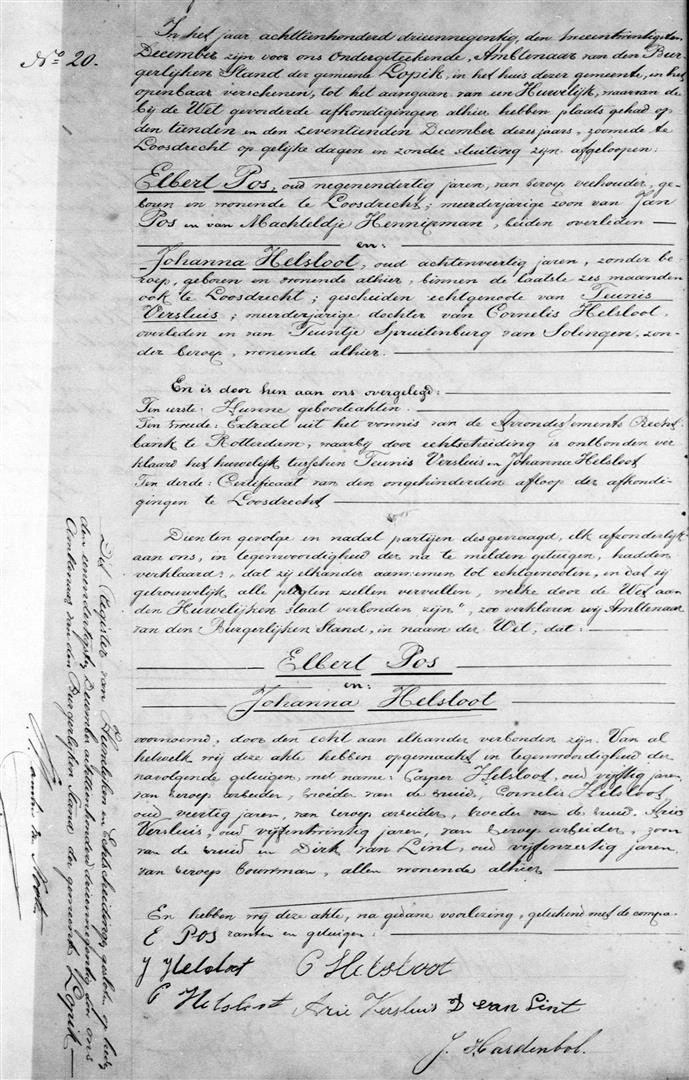 No 20.
In het jaar achttienhonderd drieennegentig, den tweeentwintigsten
December zijn voor ons ondergeteekende, Ambtenaar van den Bur-
gerlijken Stand der gemeente Lopik, in het huis dezer gemeente, in het
openbaar verschenen, tot het aangaan van een Huwelijk, waarvan de
bij de Wet gevorderde afkondigingen alhier hebben plaats gehad op
den tienden en den zeventienden December dezes jaars, zoomede te
Loosdrecht op gelijke dagen en zonder stuiting zijn afgeloopen:
Elbert Pos, oud negenendertig jaren, van beroep veehouder, ge-
boren en wonende te Loosdrecht; meerderjarige zoon van Jan
Pos en van Machteldje Hennipman, beiden overleden
en:
Johanna Helsloot, oud achtenveertig jaren, zonder be-
roep, geboren en wonende alhier, binnen de laatste zes maanden
ook te Loosdrecht; gescheiden echtgenoote van Teunis
Versluis; meerderjarige dochter van Cornelis Helsloot,
overleden en van Teuntje Spruitenburg van Solingen, zon-
der beroep, wonende alhier.
En is door hen aan ons overgelegd:
Ten eerste: Hunne geboorteakten.
Ten tweede: Extract uit het vonnis van de Arrondissements Recht-
bank te Rotterdam, waarbij door echtscheiding is ontbonden ver
klaard het huwelijk tusschen Teunis Versluis en Johanna Helsloot
Ten derde: Certificaat van den ongehinderden afloop der afkondi-
gingen te Loosdrecht
Dien ten gevolge en nadat partijen desgevraagd, elk afzonderlijk
aan ons, in tegenwoordigheid der na te melden getuigen, hadden
verklaard: „dat zij elkander aannemen tot echtgenooten, en dat zij
getrouwelijk alle pligten zullen vervullen, welke door de Wet aan
den Huwelijken staat verbonden zijn", zoo verklaren wij Ambtenaar
van den Burgerlijken Stand, in naam der Wet, dat:
Elbert Pos
en:
Johanna Helsloot
voornoemd, door den echt aan elkander verbonden zijn. Van al
hetwelk wij deze akte hebben opgemaakt in tegenwoordigheid der
navolgende getuigen, met name: Casper Helsloot, oud vijftig jaren,
van beroep arbeider, broeder van de bruid, Cornelis Helsloot,
oud veertig jaren, van beroep arbeider, broeder van de bruid, Arie
Versluis, oud vijfentwintig jaren, van beroep arbeider, zoon
van de bruid en Dirk van Lint, oud vijfenzestig jaren
van beroep bouwman, allen wonende alhier
En hebben wij deze akte, na gedane voorlezing, geteekend met de compa-
ranten en getuigen:
E Pos
J Helsloot C Helsloot
C Helsloot Arie Versluis D van Lint
J. Hardenbol.
Dit Register van Huwelijken en Echtscheidingen gesloten op heden
den eenendertigsten December achttienhonderd drieennegentig door ons
Ambtenaar van den Burgerlijken Stand der gemeente Lopik